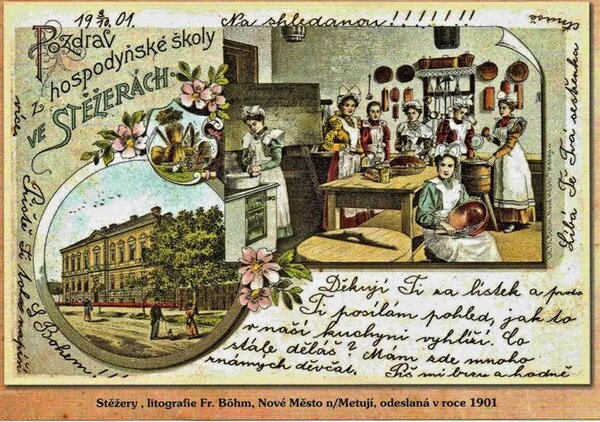 19 9/10 01.
Na shledanou!!!!!!!
Pozdrav
z hospodyňské školy
VE STĚŽERÁCH.
Děkuji Ti za lístek a proto
Ti posílám pohled, jak to
v naší kuchyni vyhlíží. Co
stále děláš? Mám zde mnoho
známých děvčat. Piš mi brzo a hodně
S Bohem!!!
Líbá Tě Tvá sestřenka
Stěžery , litografie Fr. Böhm, Nové Město n/Metují, odeslaná v roce 1901